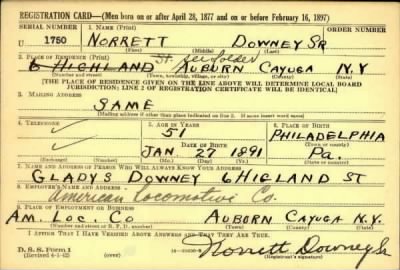 REGISTRATION CARD—(Men born on or after April 28, 1877 and on or before February 16, 1897)
SERIAL NUMBER 1. NAME (Print) ORDER NUMBER
U 1750 NORRETT DOWNEY SR
(First) (Middle) (Last)
2. PLACE OF RESIDENCE (Print) St. see folder
6 HIGHLAND AUBURN CAYUGA N.Y
(Number and street) (Town, township, village, or city) (County) (State)
[THE PLACE OF RESIDENCE GIVEN ON THE LINE ABOVE WILL DETERMINE LOCAL BOARD
JURISDICTION; LINE 2 OF REGISTRATION CERTIFICATE WILL BE IDENTICAL]
3. MAILING ADDRESS
SAME
[Mailing address if other than place indicated on line 2. If same insert word same]
4. TELEPHONE 5. AGE IN YEARS 6. PLACE OF BIRTH
51 PHILADELPHIA
DATE OF BIRTH (Town or county)
JAN. 27 1891 Pa.
(Exchange) (Number) (Mo.) (Day) (Yr.) (State or country)
7. NAME AND ADDRESS OF PERSON WHO WILL ALWAYS KNOW YOUR ADDRESS
GLADYS DOWNEY 6 HIGLAND ST
8. EMPLOYER'S NAME AND ADDRESS
American Locomotive Co.
9. PLACE OF EMPLOYMENT OR BUSINESS
AM. LOC. CO AUBORN CAYUGA N.Y.
(Number and street or R. F. D. number) (Town) (County) (State)
I AFFIRM THAT I HAVE VERIFIED ABOVE ANSWERS AND THAT THEY ARE TRUE.
D. S. S. Form 1
(Revised 4-1-42) Norrett Downey Sr
(Registrant's signature)